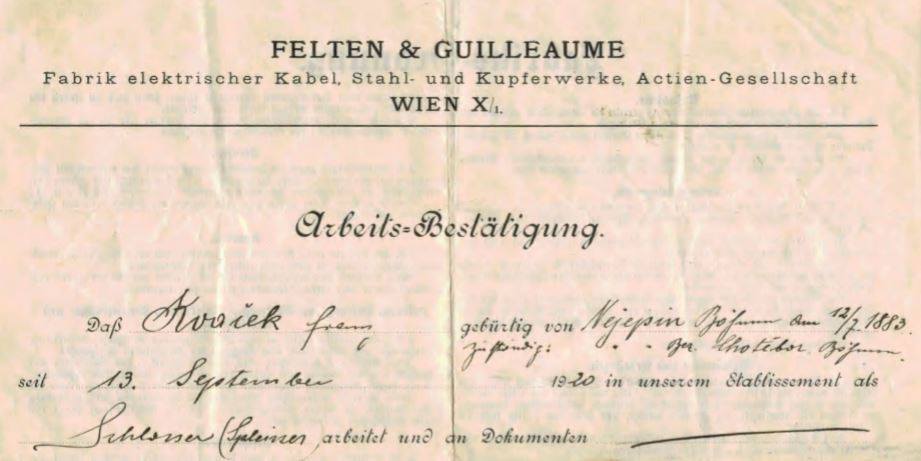 FELTEN & GUILLEAUME
Fabrik elektrischer Kabel, Stahl- und Kupferwerke, Actien-Gesellschaft
WIEN X/1.
Arbeits-Bestätigung.
Daß Kvaček Franz gebürtig von Nejepin Böhmen am 12/7 1883
zuständig: " " Bez. Chotebor, Böhmen.
seit 13. September 1920 in unserem Etablissement als
Schlosser (Spleisser arbeitet und an Dokumenten